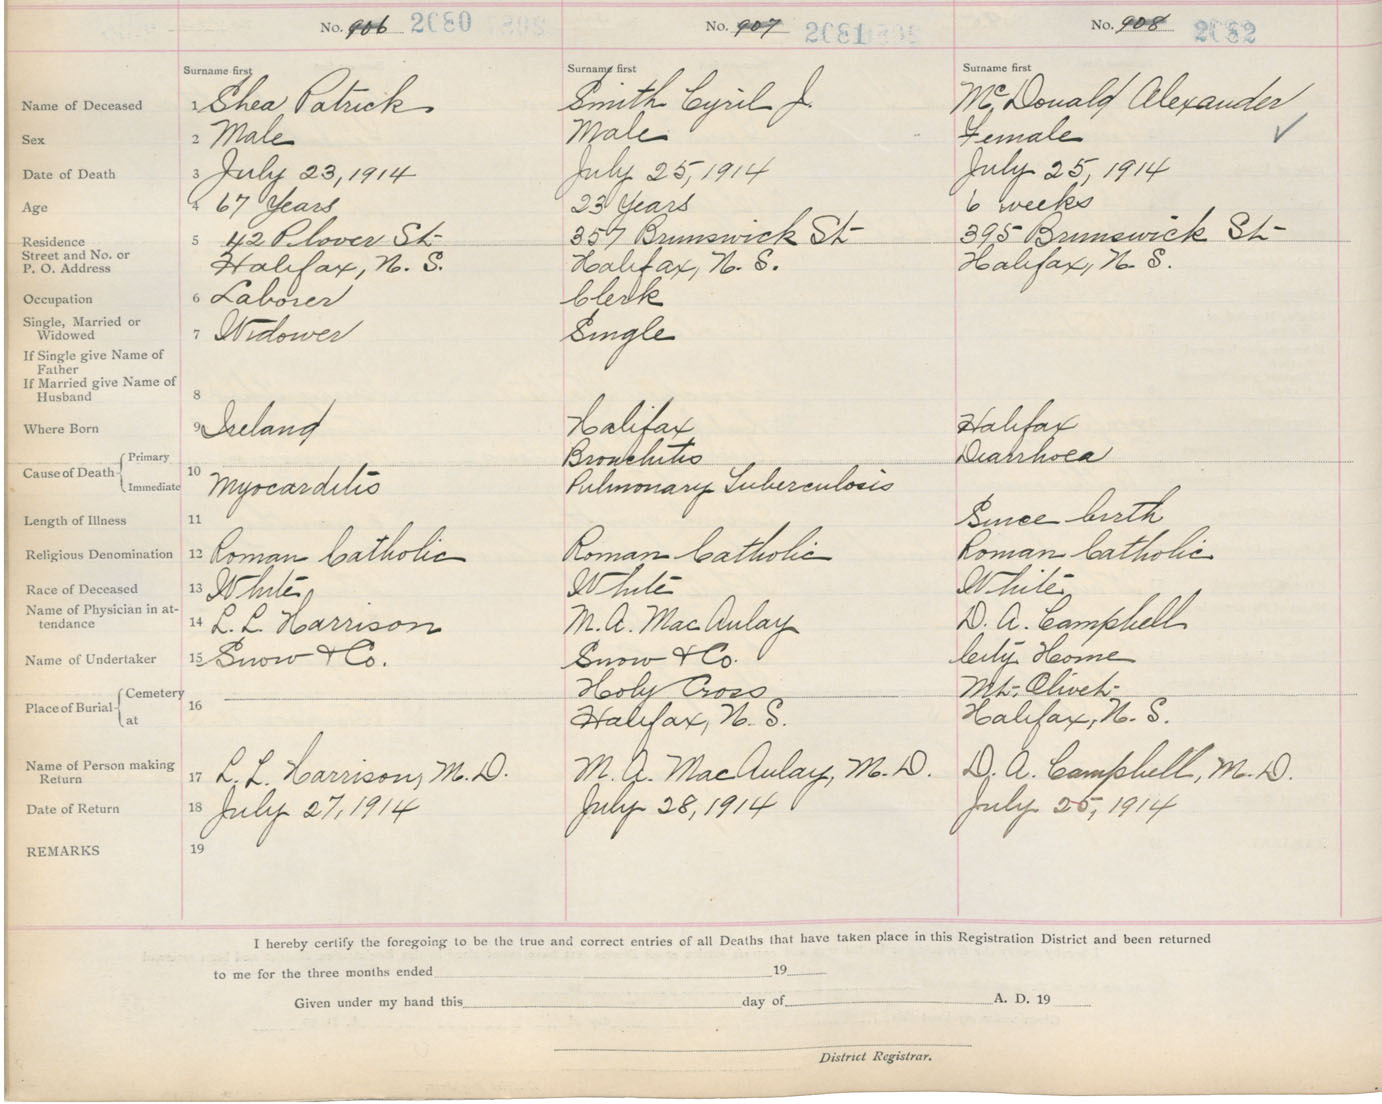 No. 906 2080 No. 907 2081 No. 908 2082
Surname first Surname first Surname first
Name of Deceased 1 Shea Patrick Smith Cyril J. McDonald Alexander
Sex 2 Male Male Female ✓
Date of Death 3 July 23, 1914 July 25, 1914 July 25, 1914
Age 4 67 Years 23 Years 6 weeks
Residence 5 42 Plover St 357 Brunswick St 395 Brunswick St
Street and No. or
P. O. Address Halifax, N. S. Halifax, N. S. Halifax, N. S.
Occupation 6 Laborer Clerk
Single, Married or
Widowed 7 Widower Single
If Single give Name of
Father
If Married give Name of
Husband 8
Where Born 9 Ireland Halifax Halifax
Primary Bronchitis Diarrhoea
Cause of Death 10
Immediate Myocarditis Pulmonary Tuberculosis
Length of Illness 11 Since birth
Religious Denomination 12 Roman Catholic Roman Catholic Roman Catholic
Race of Deceased 13 White White White
Name of Physician in at-
tendance 14 L. L. Harrison M. A. MacAulay D. A. Campbell
Name of Undertaker 15 Snow & Co. Snow & Co. City Home
Cemetery Holy Cross Mt. Olivet
Place of Burial 16
at Halifax, N. S. Halifax, N. S.
Name of Person making
Return 17 L. L. Harrison, M. D. M. A. MacAulay, M. D. D. A. Campbell, M. D.
Date of Return 18 July 27, 1914 July 28, 1914 July 25, 1914
REMARKS 19
I hereby certify the foregoing to be the true and correct entries of all Deaths that have taken place in this Registration District and been returned
to me for the three months ended 19
Given under my hand this day of A. D. 19
District Registrar.